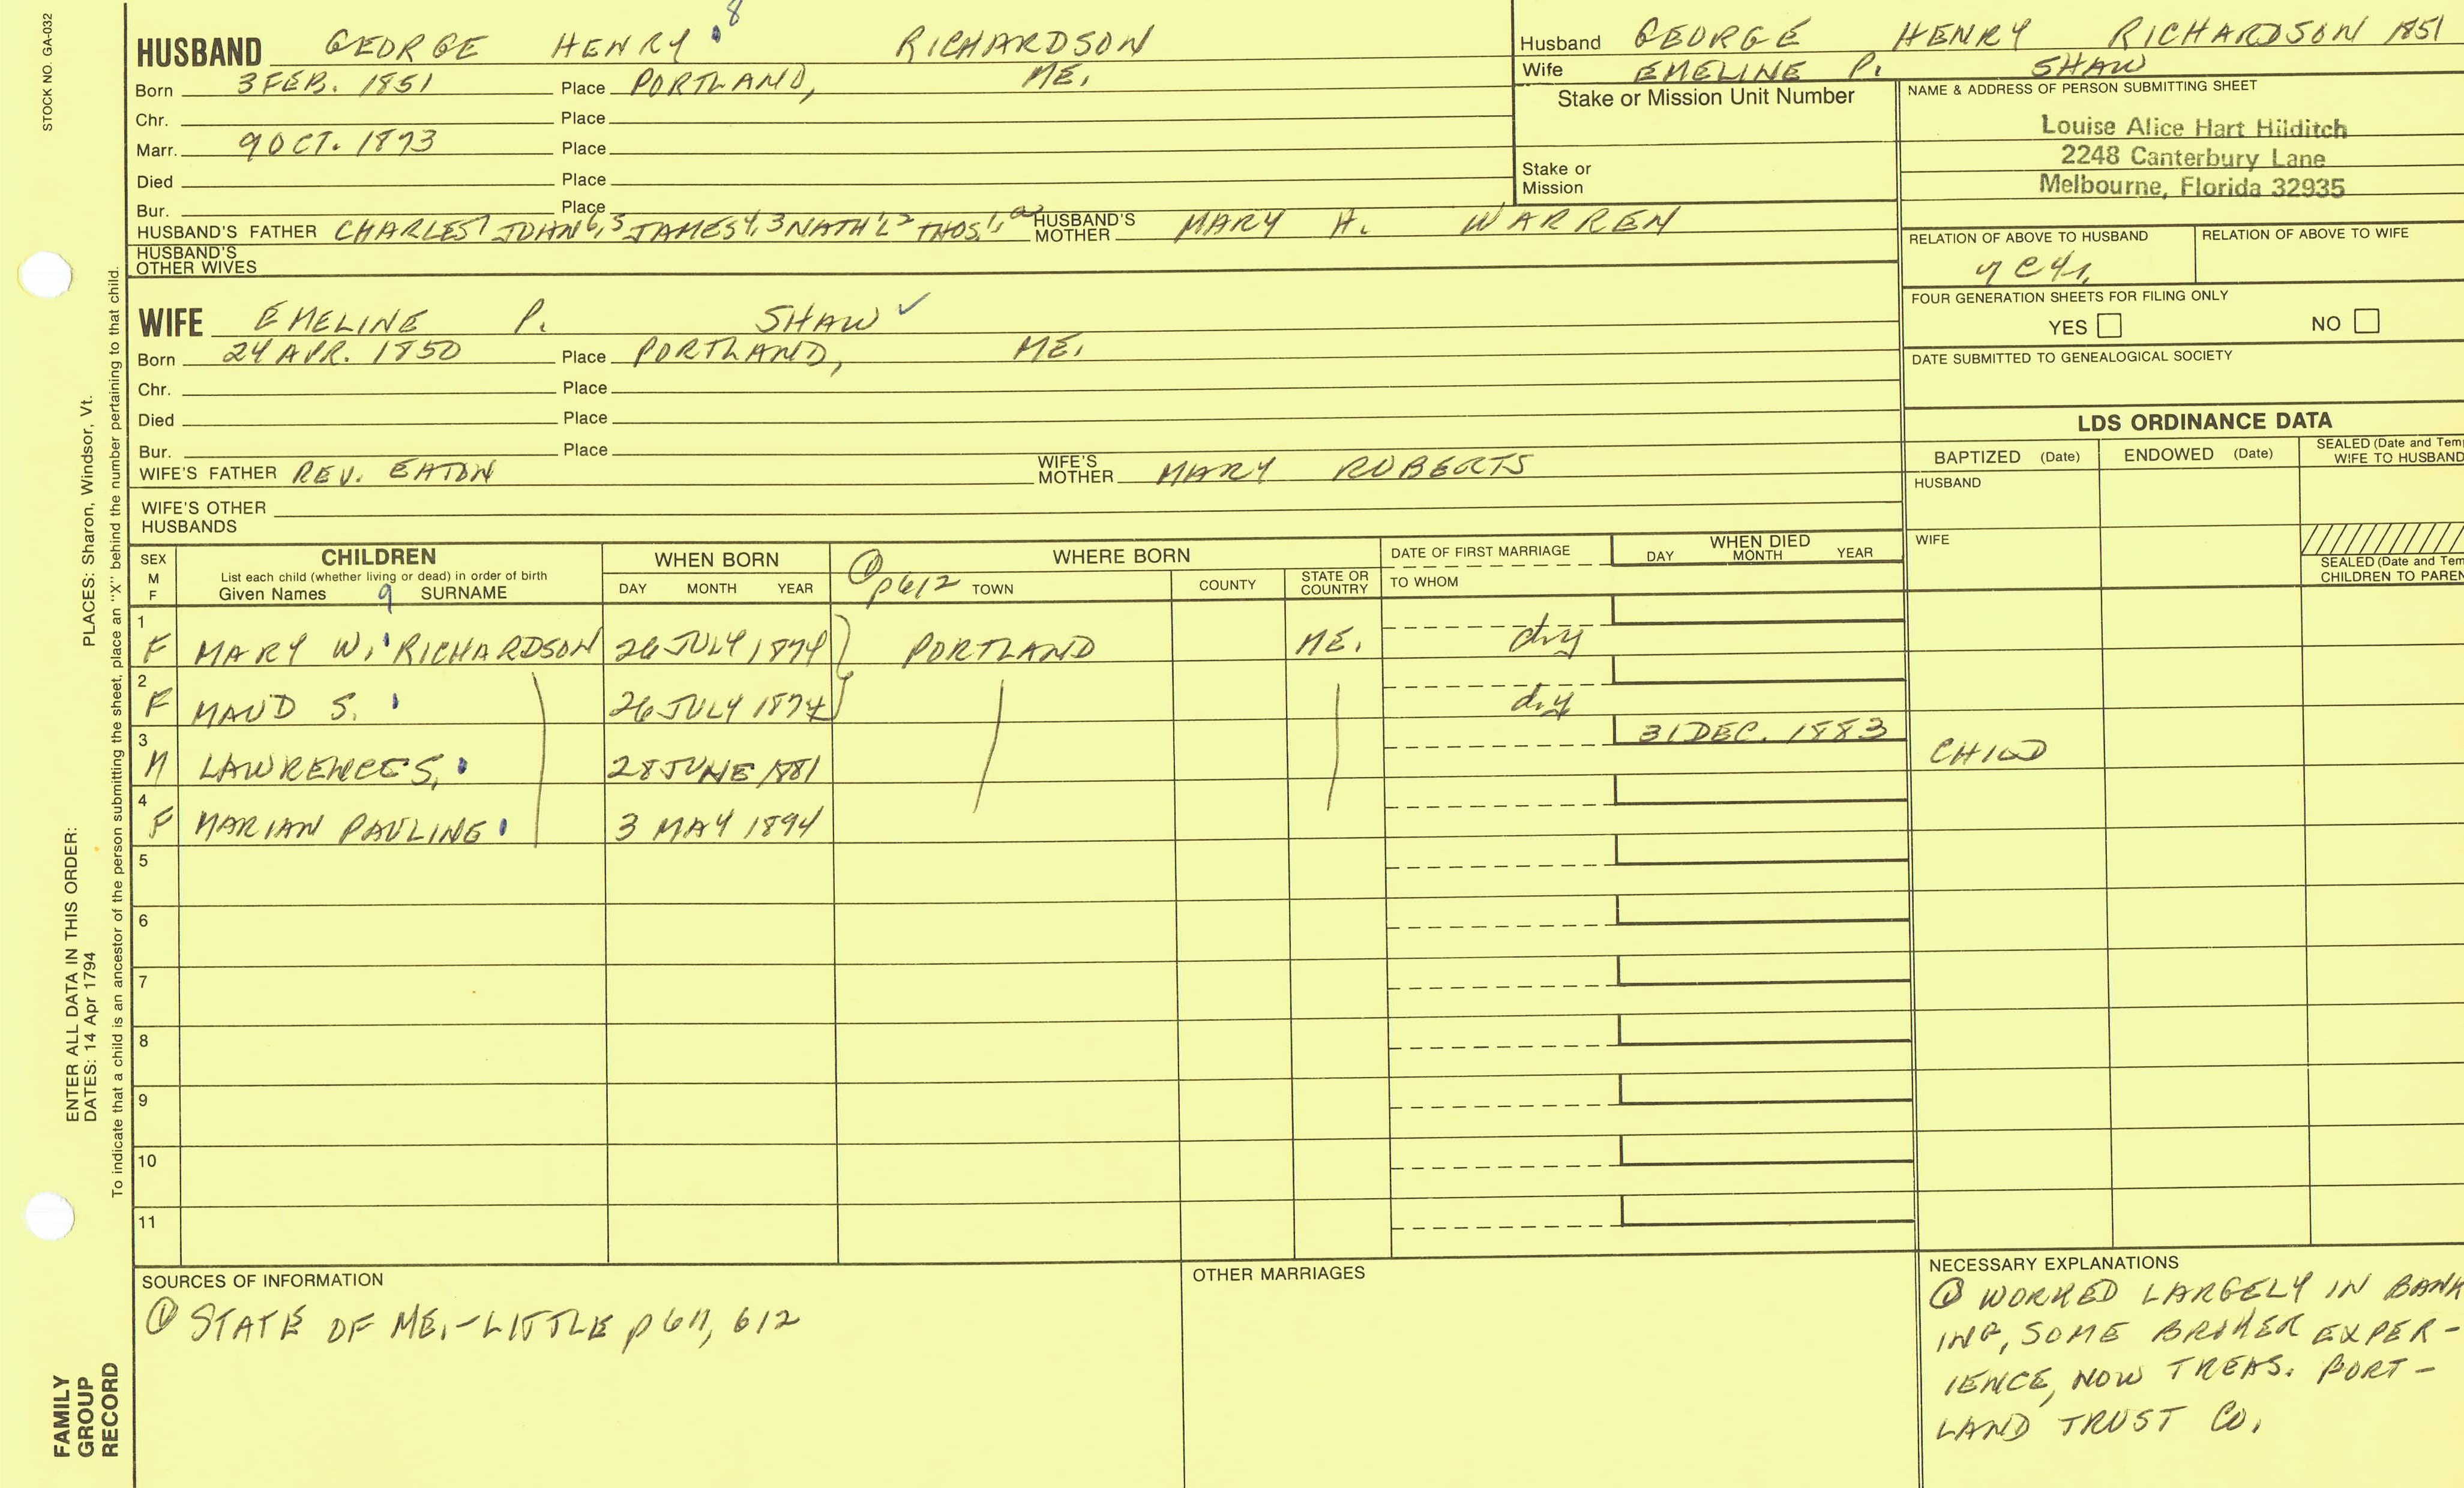 STOCK NO. GA-032
HUSBAND GEORGE HENRY 8 RICHARDSON
Born 3 FEB. 1851 Place PORTLAND, ME.
Chr. Place
Marr. 9 OCT. 1873 Place
Died Place
Bur. Place
HUSBAND'S FATHER CHARLES7 JOHN6,5 JAMES4,3 NATH'L2 THOS.1, HUSBAND'S MOTHER MARY H. WARREN
HUSBAND'S OTHER WIVES
WIFE EMELINE P. SHAW ✓
Born 24 APR. 1850 Place PORTLAND, ME.
Chr. Place
Died Place
Bur. Place
WIFE'S FATHER REV. EATON WIFE'S MOTHER MARY ROBERTS
WIFE'S OTHER HUSBANDS
Husband GEORGE HENRY RICHARDSON 1851
Wife EMELINE P. SHAW
Stake or Mission Unit Number
Stake or Mission
NAME & ADDRESS OF PERSON SUBMITTING SHEET
Louise Alice Hart Hilditch
2248 Canterbury Lane
Melbourne, Florida 32935
RELATION OF ABOVE TO HUSBAND RELATION OF ABOVE TO WIFE
FOUR GENERATION SHEETS FOR FILING ONLY
YES NO
DATE SUBMITTED TO GENEALOGICAL SOCIETY
LDS ORDINANCE DATA
BAPTIZED (Date) ENDOWED (Date) SEALED (Date and Tem
WIFE TO HUSBAND
HUSBAND
WIFE
SEALED (Date and Tem
CHILDREN TO PAREN
SEX M F
CHILDREN
List each child (whether living or dead) in order of birth
Given Names 9 SURNAME
WHEN BORN
DAY MONTH YEAR
① p612
WHERE BORN
TOWN COUNTY STATE OR COUNTRY
DATE OF FIRST MARRIAGE
TO WHOM
WHEN DIED
DAY MONTH YEAR
1 F MARY W. RICHARDSON 26 JULY 1874 PORTLAND ME.
2 F MAUD S. 26 JULY 1874
3 M LAWRENCE S. 28 JUNE 1881 31 DEC. 1883 CHILD
4 F MARIAN PAULINE 3 MAY 1894
5
6
7
8
9
10
11
SOURCES OF INFORMATION
① STATE OF ME.-LITTLE p 611, 612
OTHER MARRIAGES
NECESSARY EXPLANATIONS
① WORKED LARGELY IN BANK
ING, SOME BROKER EXPER-
IENCE, NOW TREAS. PORT-
LAND TRUST CO.
PLACES: Sharon, Windsor, Vt.
To indicate that a child is an ancestor of the person submitting the sheet, place an "X" behind the number pertaining to that child.
ENTER ALL DATA IN THIS ORDER:
DATES: 14 Apr 1794
FAMILY
GROUP
RECORD